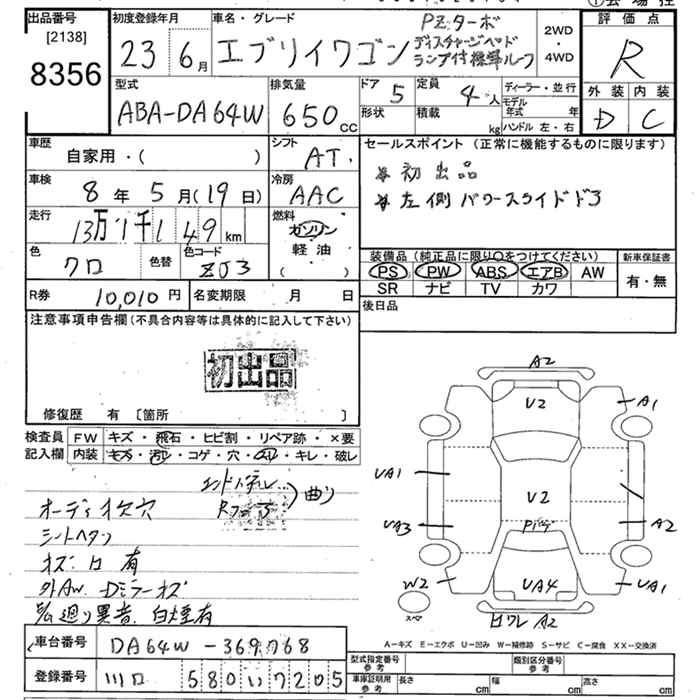 出品番号
[2138]
8356
初度登録年月
23 6月
車名・グレード
エブリイワゴン
PZターボ
ディスチャージヘッド
ランプ付標準ルーフ
2WD
・
4WD
評価点
R
外装 内装
D C
型式
ABA-DA64W
排気量
650 cc
ドア 5
形状
定員 4人
積載 kg
ディーラー・並行
モデル
年式 年
ハンドル 左・右
車歴
自家用・( )
シフト
AT
セールスポイント (正常に機能するものに限ります)
※初出品
※左側パワースライドドア
車検
8年 5月(19日)
冷房
AAC
走行
13万1千149 km
燃料
ガソリン
軽油
( )
色
クロ
色替
色コード
ZJ3
装備品 (純正品に限り○をつけてください)
PS PW ABS エアB AW
SR ナビ TV カワ
新車保証書
有・無
R券 10,010円
名変期限 月 日
後日品
注意事項申告欄(不具合内容等は具体的に記入して下さい)
初出品
修復歴 有 〔箇所 〕
検査員
記入欄
FW キズ・飛石・ヒビ割・リペア跡・×要
内装 キズ・汚レ・コゲ・穴・スレ・キレ・破レ
曲り
オーディオ欠穴
シートヘタリ
キズ凹有
外AW Dミラーキズ
異音 白煙有
A2
U2
A1
UA1
U2
UA3
A2
W2
UA4
UA1
スペア
A2
A−キズ E−エクボ U−凹み W−補修跡 S−サビ C−腐食 XX−交換済
車台番号 DA64W-369768
登録番号 川口 580い7205
型式指定番号
参考
類別区分番号
参考
車庫証明用
参考
長さ cm 幅 cm 高さ cm